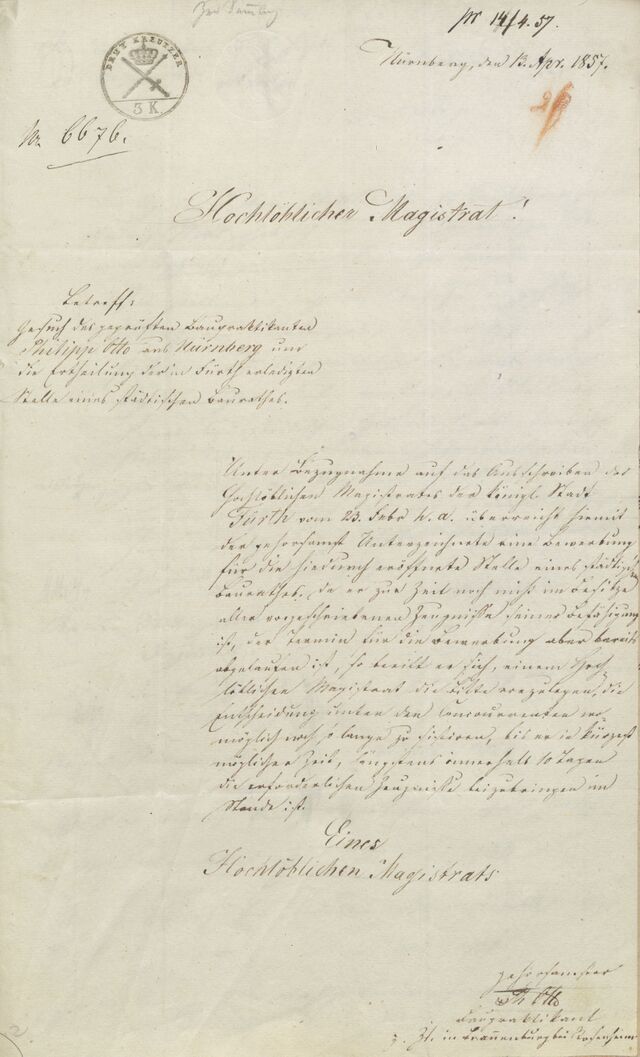 Zur Sammlg
pr 14/4.57.
Nürnberg, den 13. Apr. 1857.
DREY KREUTZER
3 K
No. 6676.
Hochlöblicher Magistrat!
Betreff:
Gesuch des geprüften Baupraktikanten
Philipp Otto aus Nürnberg um
die Ertheilung der in Fürth erledigten
Stelle eines städtischen Baurathes.
Unter Bezugnahme auf das Ausschreiben des
Hochlöblichen Magistrates der königl. Stadt
Fürth vom 23. Febr. h. a. überreicht hiemit
der gehorsamst Unterzeichnete eine Bewerbung
für die hiedurch eröffnete Stelle eines städtischen
Baurathes. Da er zur Zeit noch nicht im Besitze
aller vorgeschriebenen Zeugnisse seiner Befähigung
ist, der Termin für die Bewerbung aber bereits
abgelaufen ist, so beeilt er sich, einem Hoch-
löblichen Magistrat die Bitte vorzulegen, die
Entscheidung unter den Concurrenten wo
möglich noch so lange zu sistiren, bis er in kürzest
möglicher Zeit, längstens innerhalb 10 Tagen
die erforderlichen Zeugnisse beizubringen im
Stande ist.
Eines
Hochlöblichen Magistrats
gehorsamster
Ph Otto
Baupraktikant
z. Zt. in Brannenburg bei Rosenheim
2